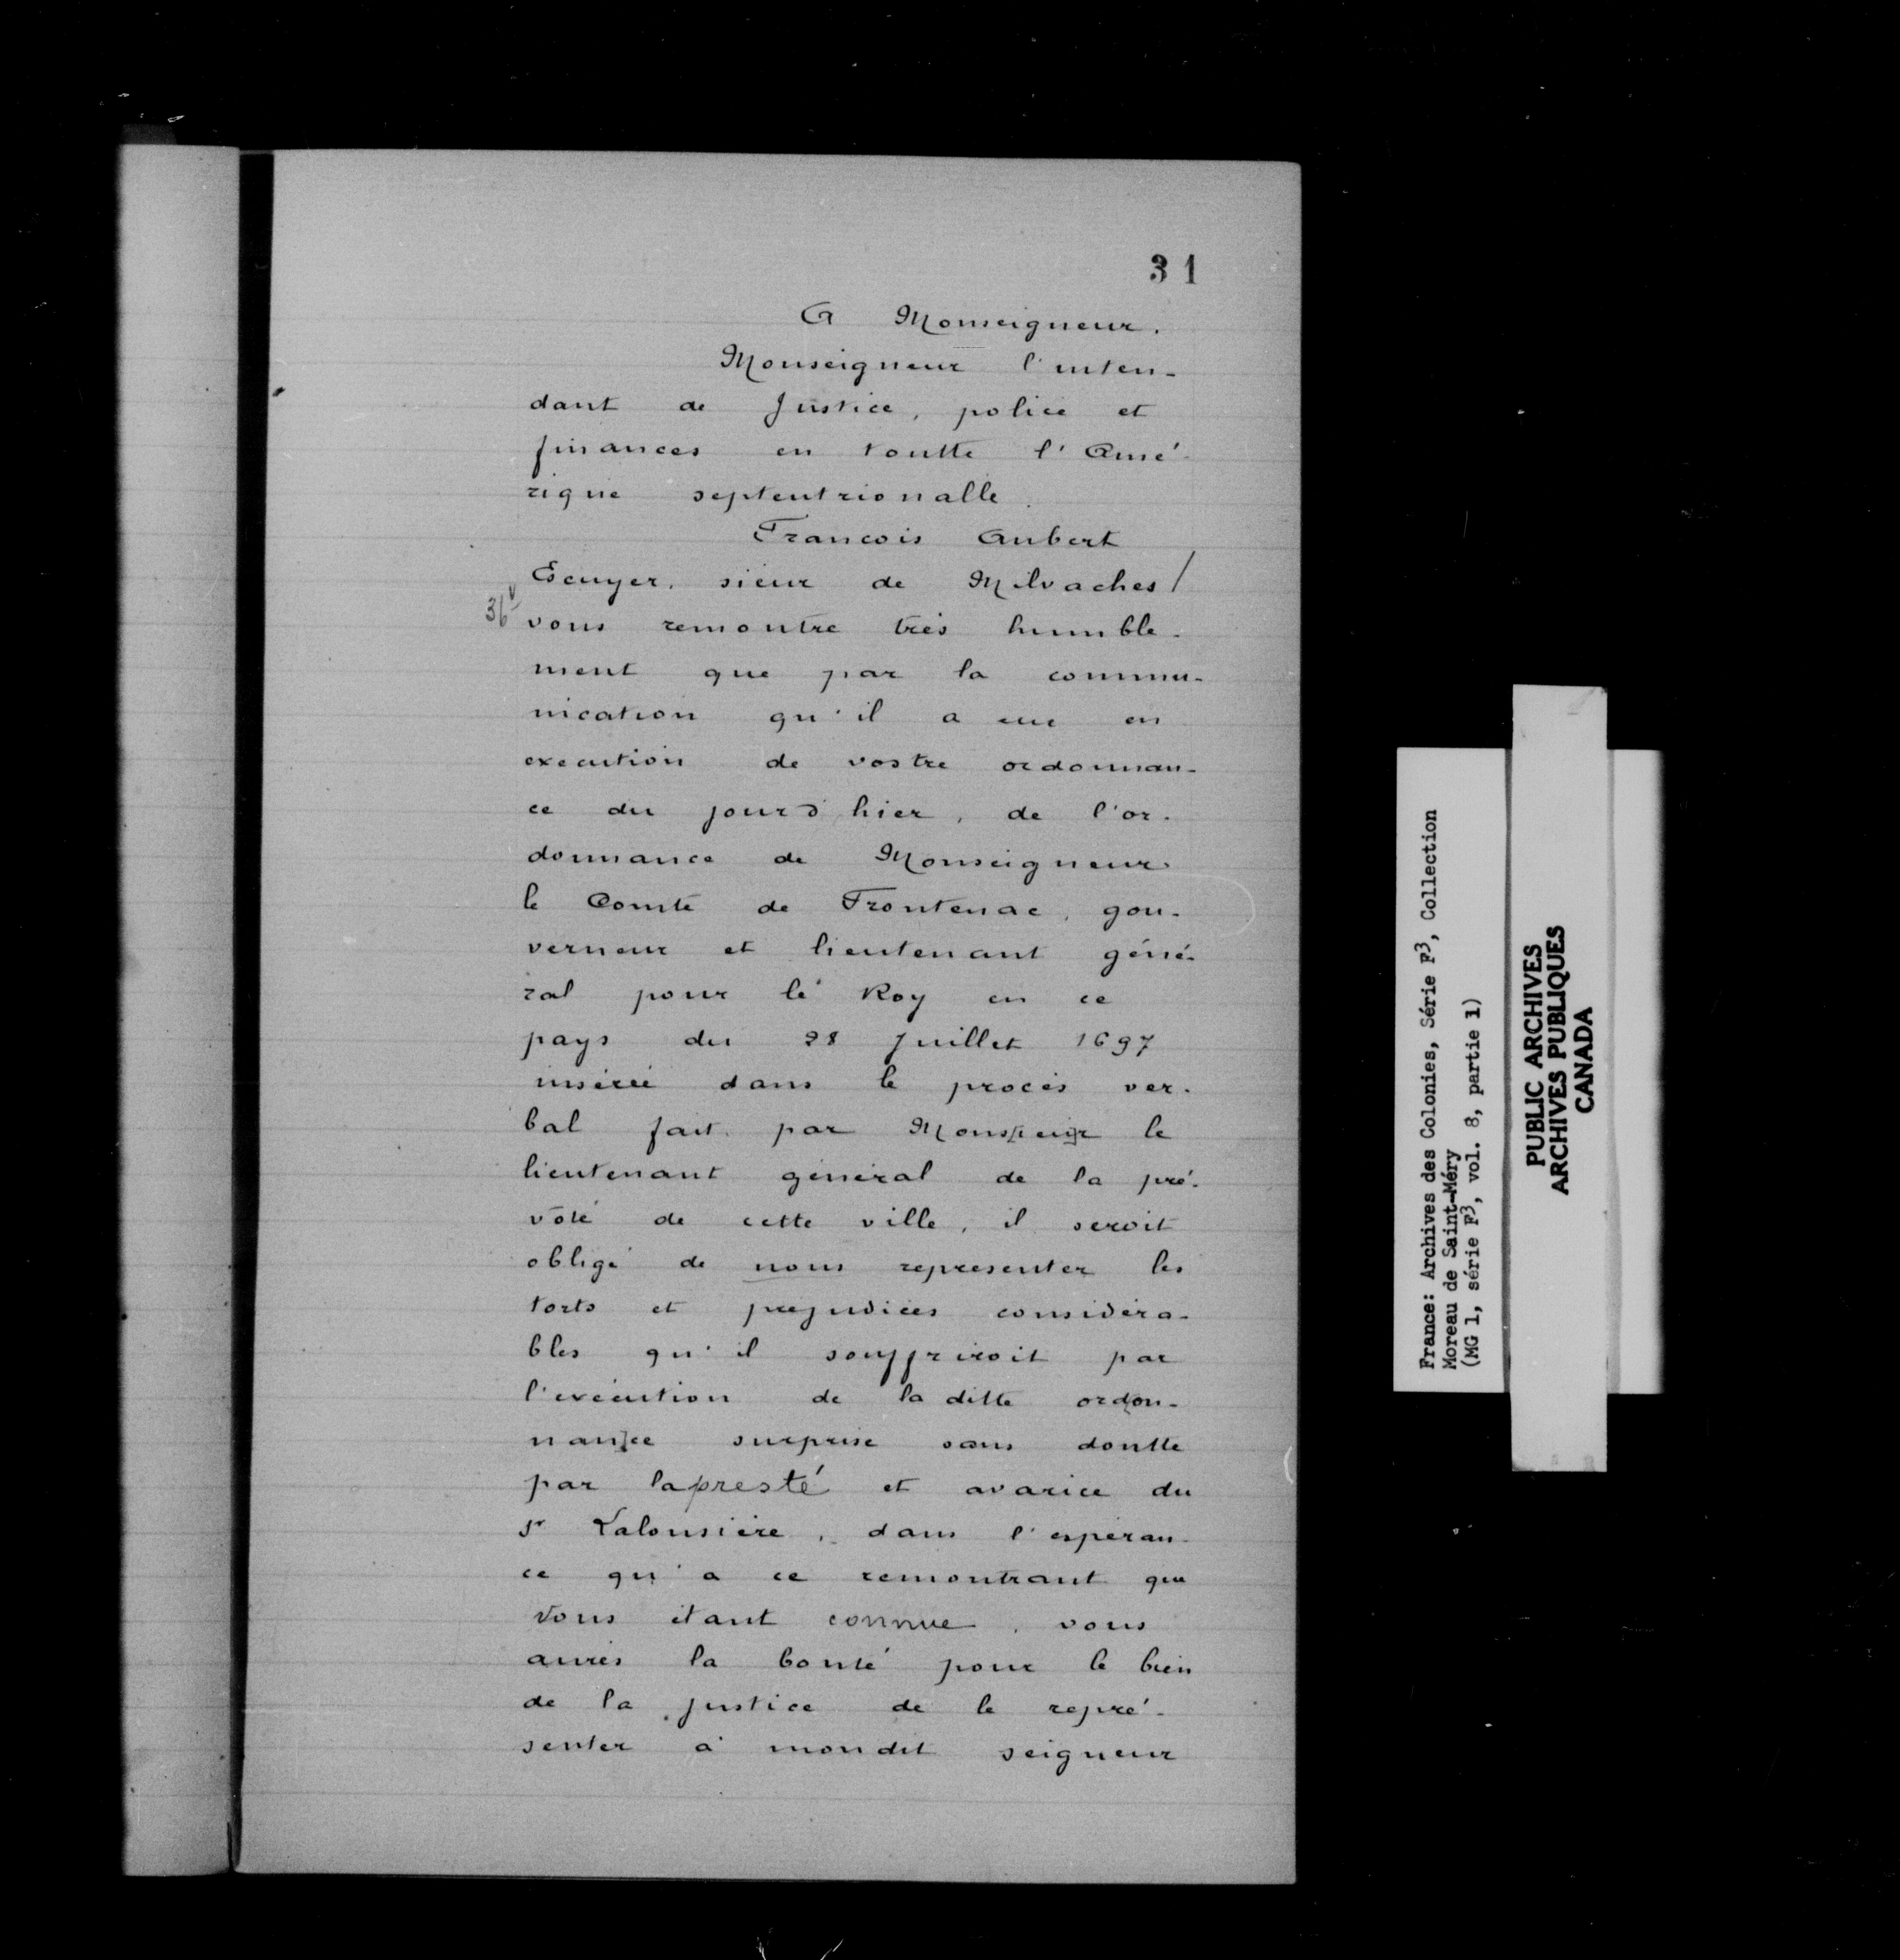 31
A Monseigneur.
Monseigneur l'inten-
dant de Justice, police et
finances en toutte l'Amé-
rique septentrionalle.
Francois Aubert
Escuyer, sieur de Milvaches /
36v vous remontre très humble-
ment que par la commu-
nication qu'il a eue en
execution de vostre ordonnan-
ce du jourd'hier, de l'or-
donnance de Monseigneur
le Comte de Frontenac, gou-
verneur et lieutenant géné-
ral pour le Roy en ce
pays du 28 Juillet 1697
insérée dans le procès ver-
bal fait par Monsieur le
lieutenant général de la pré-
vôté de cette ville, il seroit
obligé de nous représenter les
torts et préjudices considéra-
bles qu'il souffriroit par
l'exécution de la ditte ordon-
nance surprise sans doutte
par lapresté et avarice du
Sr Lalousière, dans l'espéran-
ce qu'a ce remontrant que
vous étant connue, vous
aurés la bonté pour le bien
de la justice de le repré-
senter à mondit seigneur
France: Archives des Colonies, Série F3, Collection
Moreau de Saint-Méry
(MG 1, série F3, vol. 8, partie 1)
PUBLIC ARCHIVES
ARCHIVES PUBLIQUES
CANADA